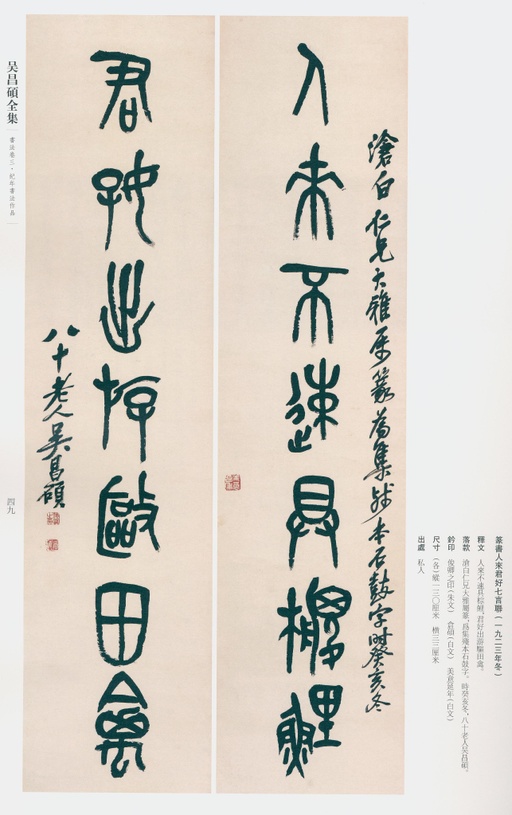 人來不速具椶鯉
滄白仁兄大雅屬篆為集殘本石鼓字時癸亥冬
君好出游敺田禽
八十老人吳昌碩
篆書人來君好七言聯（一九二三年冬）
釋文 人來不速具椶鯉，君好出游敺田禽。
落款 滄白仁兄大雅屬篆，爲集殘本石鼓字。時癸亥冬，八十老人吳昌碩。
鈐印 俊卿之印（朱文） 倉碩（白文） 美意延年（白文）
尺寸 （各）縱一三〇厘米 橫三三厘米
出處 私人
吴昌碩全集
書法卷三·紀年書法作品
四九